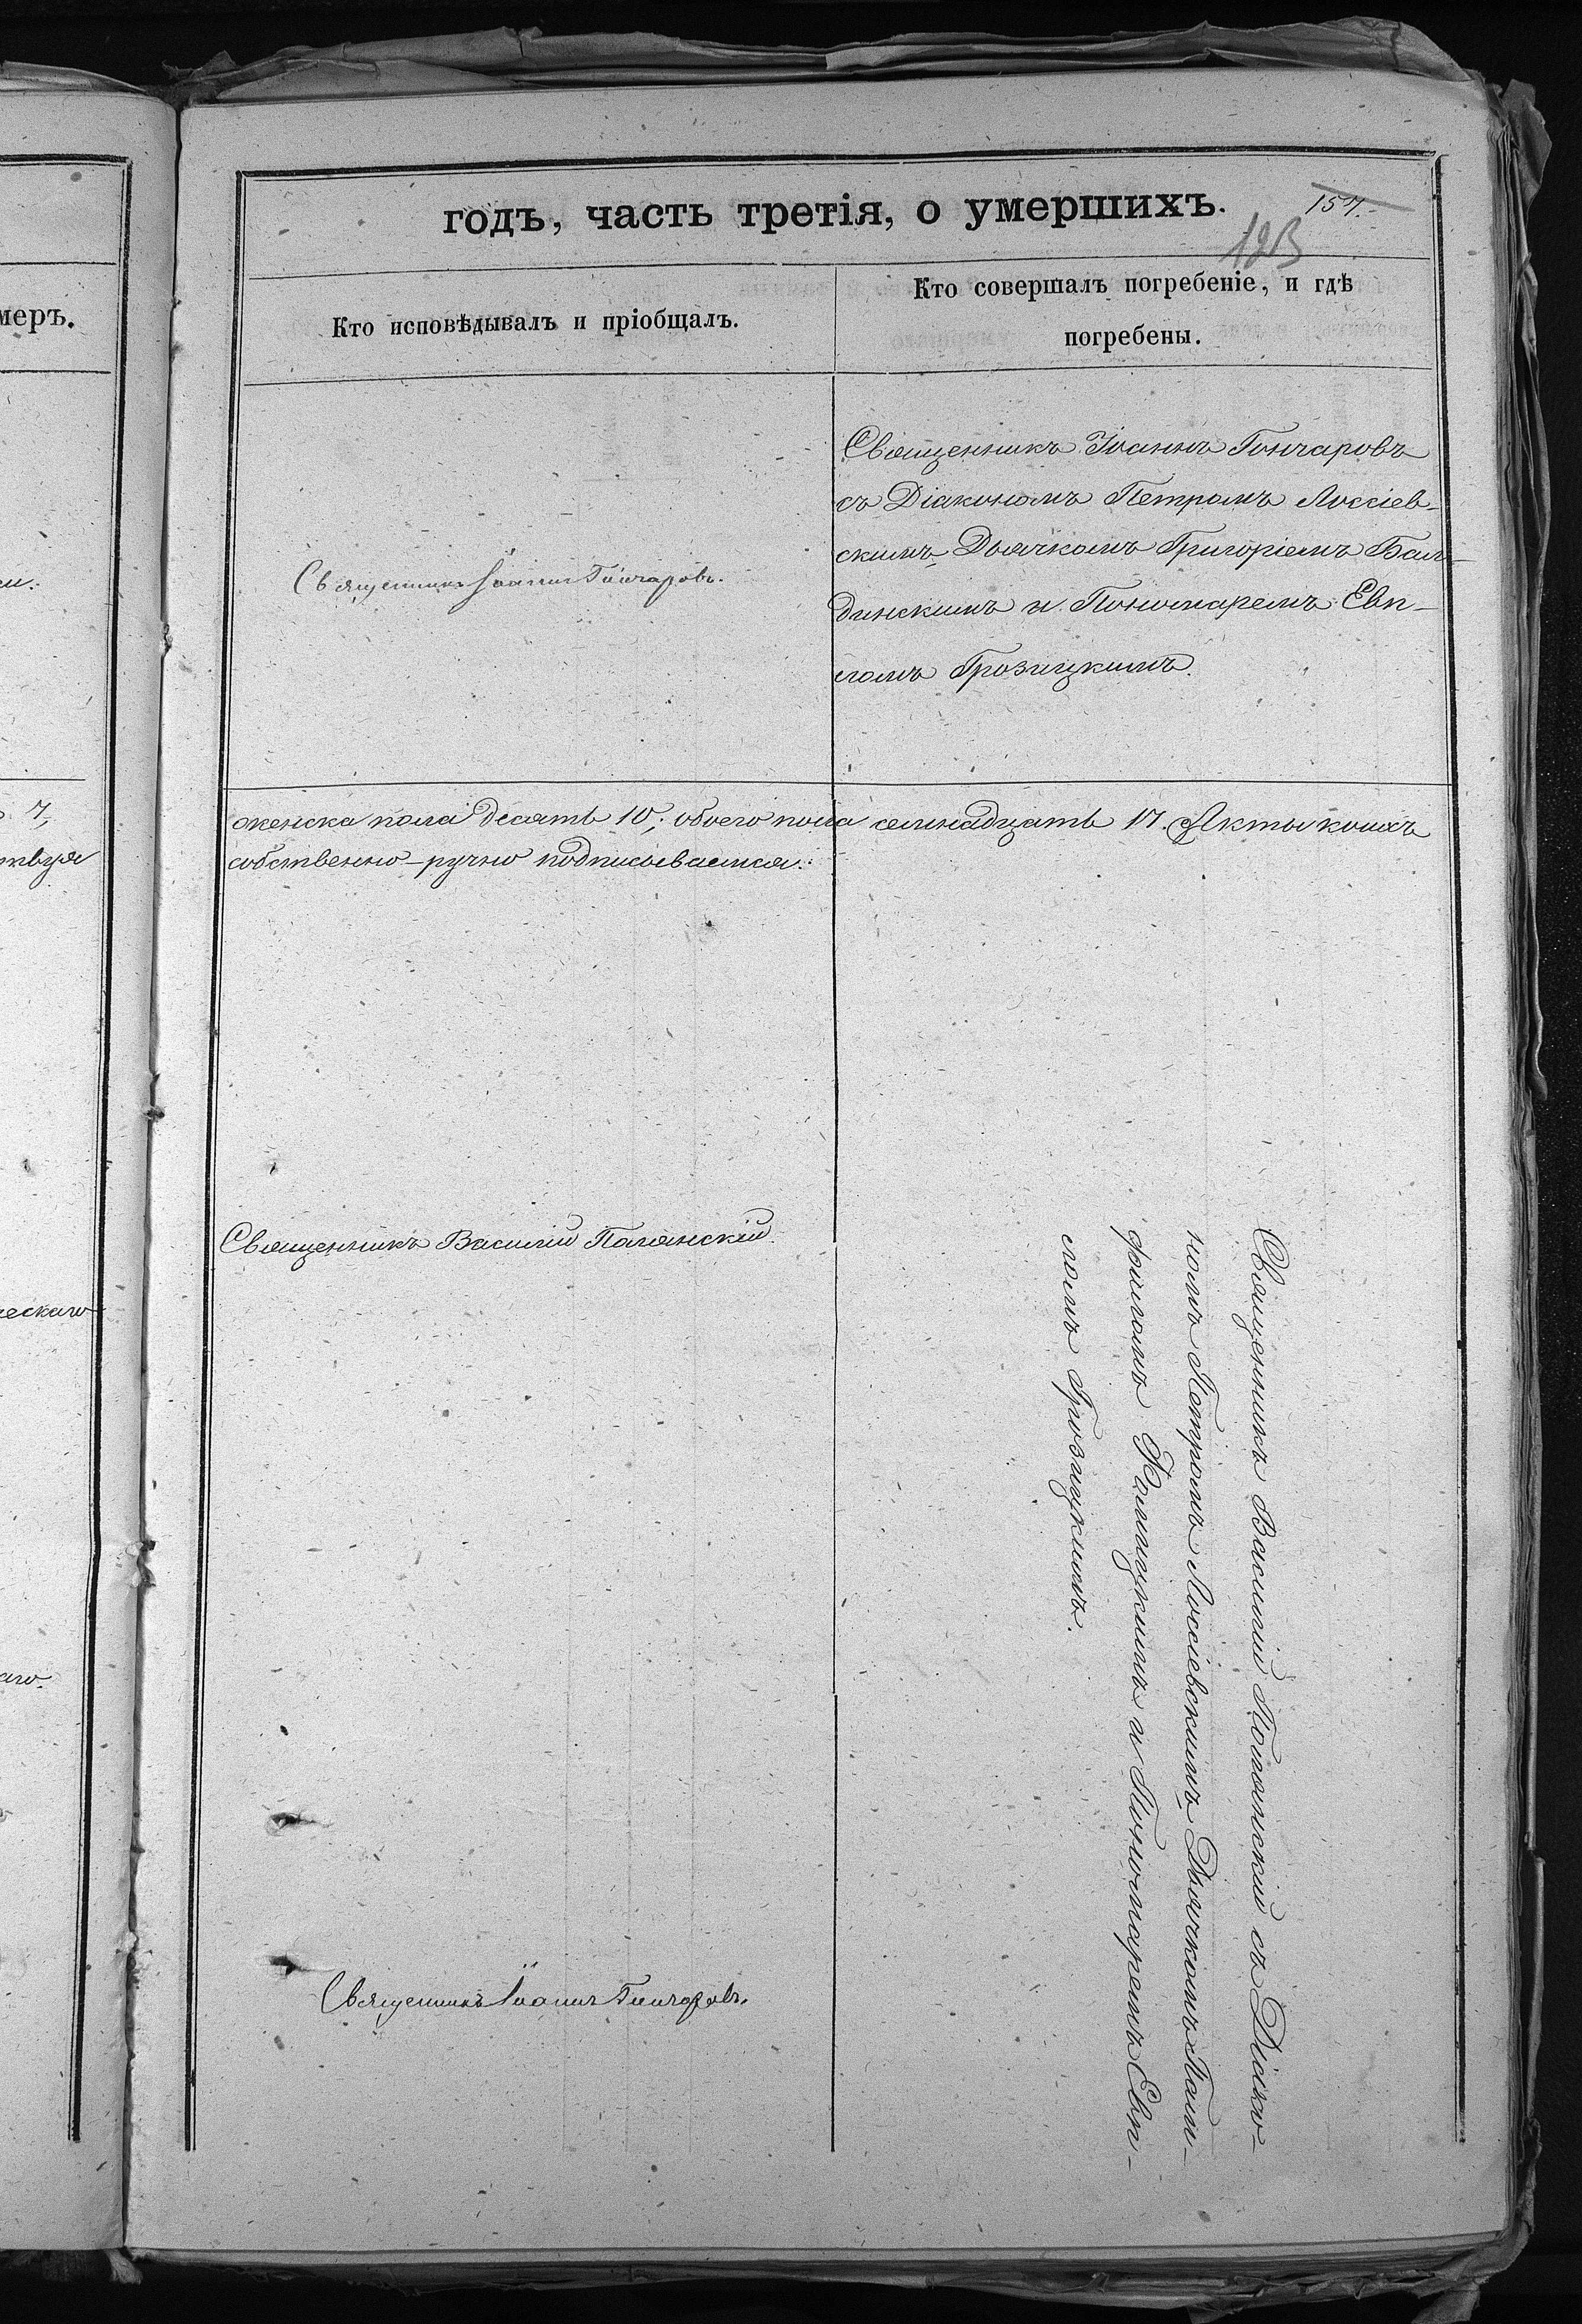 меръ.
7,
ческаго
годъ, часть третія, о умершихъ.
157.
123
Кто исповѣдывалъ и пріобщалъ.
Кто совершалъ погребеніе, и гдѣ
погребены.
Священникъ Іоаннъ Гончаровъ.
Священникъ Іоаннъ Гончаровъ
съ Діакономъ Петромъ Лоссіев-
скимъ, Дьячкомъ Григоріемъ
и Пономаремъ Евп-
ломъ Грозицкимъ.
женска пола десять 10; обоего пола семнадцать 17. Актыкомъ
собственно-ручно подписываемся:
Священникъ Василій Полянскій.
Священникъ Василій Полянскій съ Діако-
номъ Петромъ Лоссіевскимъ, Дьячкомъ Пам-
филомъ и Пономаремъ Евп-
ломъ Грозицкимъ.
Священникъ Іоаннъ Гончаровъ.